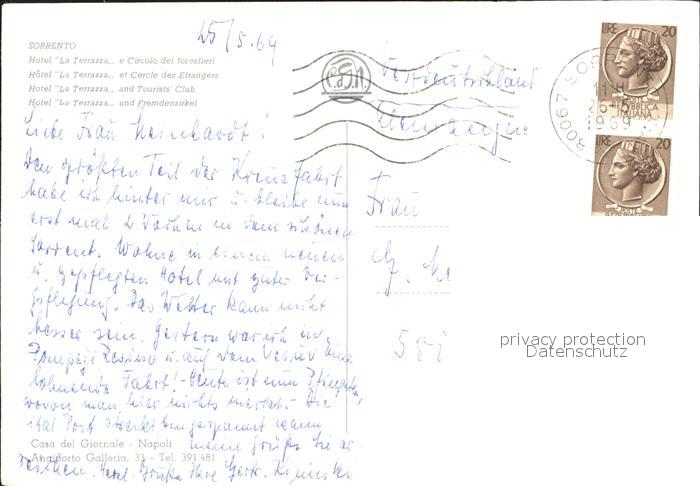 25/5.69
SORRENTO
Hotel "La Terrazza„ e Circolo dei forestieri
Hôtel "La Terrazza„ et Cercle des Etrangers
Hotel "La Terrazza„ and Tourists' Club
Hotel "La Terrazza„ und Fremdenzirkel
Liebe Frau Meinhardt!
Den größten Teil der Kreuzfahrt
habe ich hinter mir u. bleibe nun
erst mal 2 Wochen in dem schönen
Sorrent. Wohne in einem neuen
u. gepflegten Hotel mit guter Ver-
pflegung. Das Wetter kann nicht
besser sein. Gestern war ich in
Pompeji u. auf dem Vesuv eine
lohnende Fahrt! - Heute ist nun Pfingsten,
wovon man hier nichts merkt. - Die
ital. Post streikt bin gespannt wann
meine Grüße Sie er-
reichen. Herzl. Grüße Ihre
Casa del Giornale - Napoli
Angiporto Galleria, 33 - Tel. 391481
Westdeutschland
Frau
LIRE 20
POSTE
REPUBBLICA
ITALIANA
LIRE 20
80067 SORR
1969
privacy protection
Datenschutz